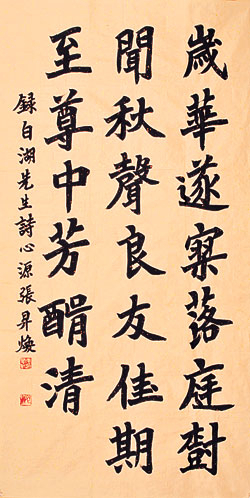 歲華遂寥落庭樹
聞秋聲良友佳期
至尊中芳醑清
録白湖先生詩心源張昇煥